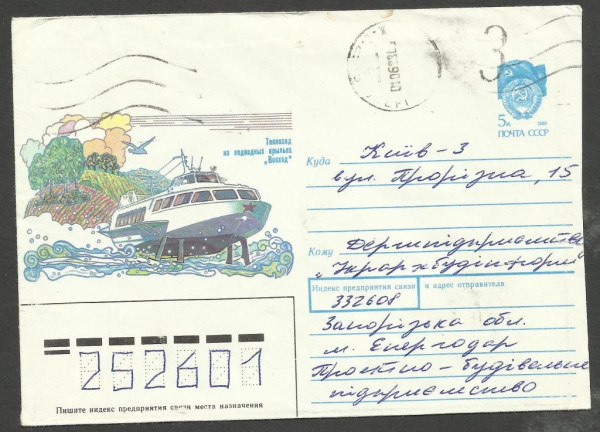 3
010693
5к 1990
ПОЧТА СССР
Теплоход
на подводных крыльях
„Восход"
Куда Київ-3
вул. Прорізна, 15
Кому Держпідприємство
„Укрархбудінформ"
Индекс предприятия связи и адрес отправителя
332608
Запорізька обл.
м. Енергодар
Проектно-будівельне
підприємство
252601
Пишите индекс предприятия связи места назначения